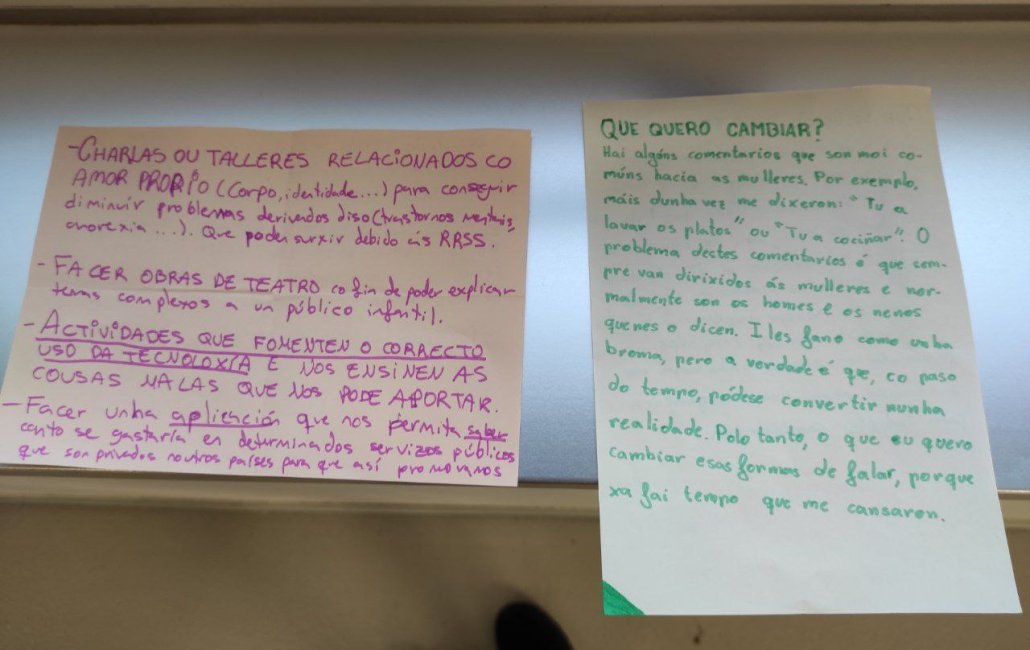 - CHARLAS OU TALLERES RELACIONADOS CO
AMOR PROPIO (Corpo, identidade...) para conseguir
diminuír problemas derivados diso (trastornos mentais,
anorexia ...). Que poden surxir debido ás RRSS.
- FACER OBRAS DE TEATRO co fin de poder explicar
temas complexos a un público infantil.
- ACTIVIDADES QUE FOMENTEN O CORRECTO
USO DA TECNOLOXÍA E NOS ENSINEN AS
COUSAS MALAS QUE NOS PODE APORTAR.
- Facer unha aplicación que nos permita saber
canto se gastaría en determinados servizos públicos
que son privados noutros países para que así promovamos
QUE QUERO CAMBIAR?
Hai algúns comentarios que son moi co-
múns hacia as mulleres. Por exemplo,
máis dunha vez me dixeron: "Tu a
lavar os platos" ou "Tu a cociñar". O
problema destes comentarios é que sem-
pre van dirixidos ás mulleres e nor-
malmente son os homes e os nenos
quenes o dicen. I les fano como unha
broma, pero a verdade é que, co paso
do tempo, pódese convertir nunha
realidade. Polo tanto, o que eu quero
cambiar esas formas de falar, porque
xa fai tempo que me cansaron.